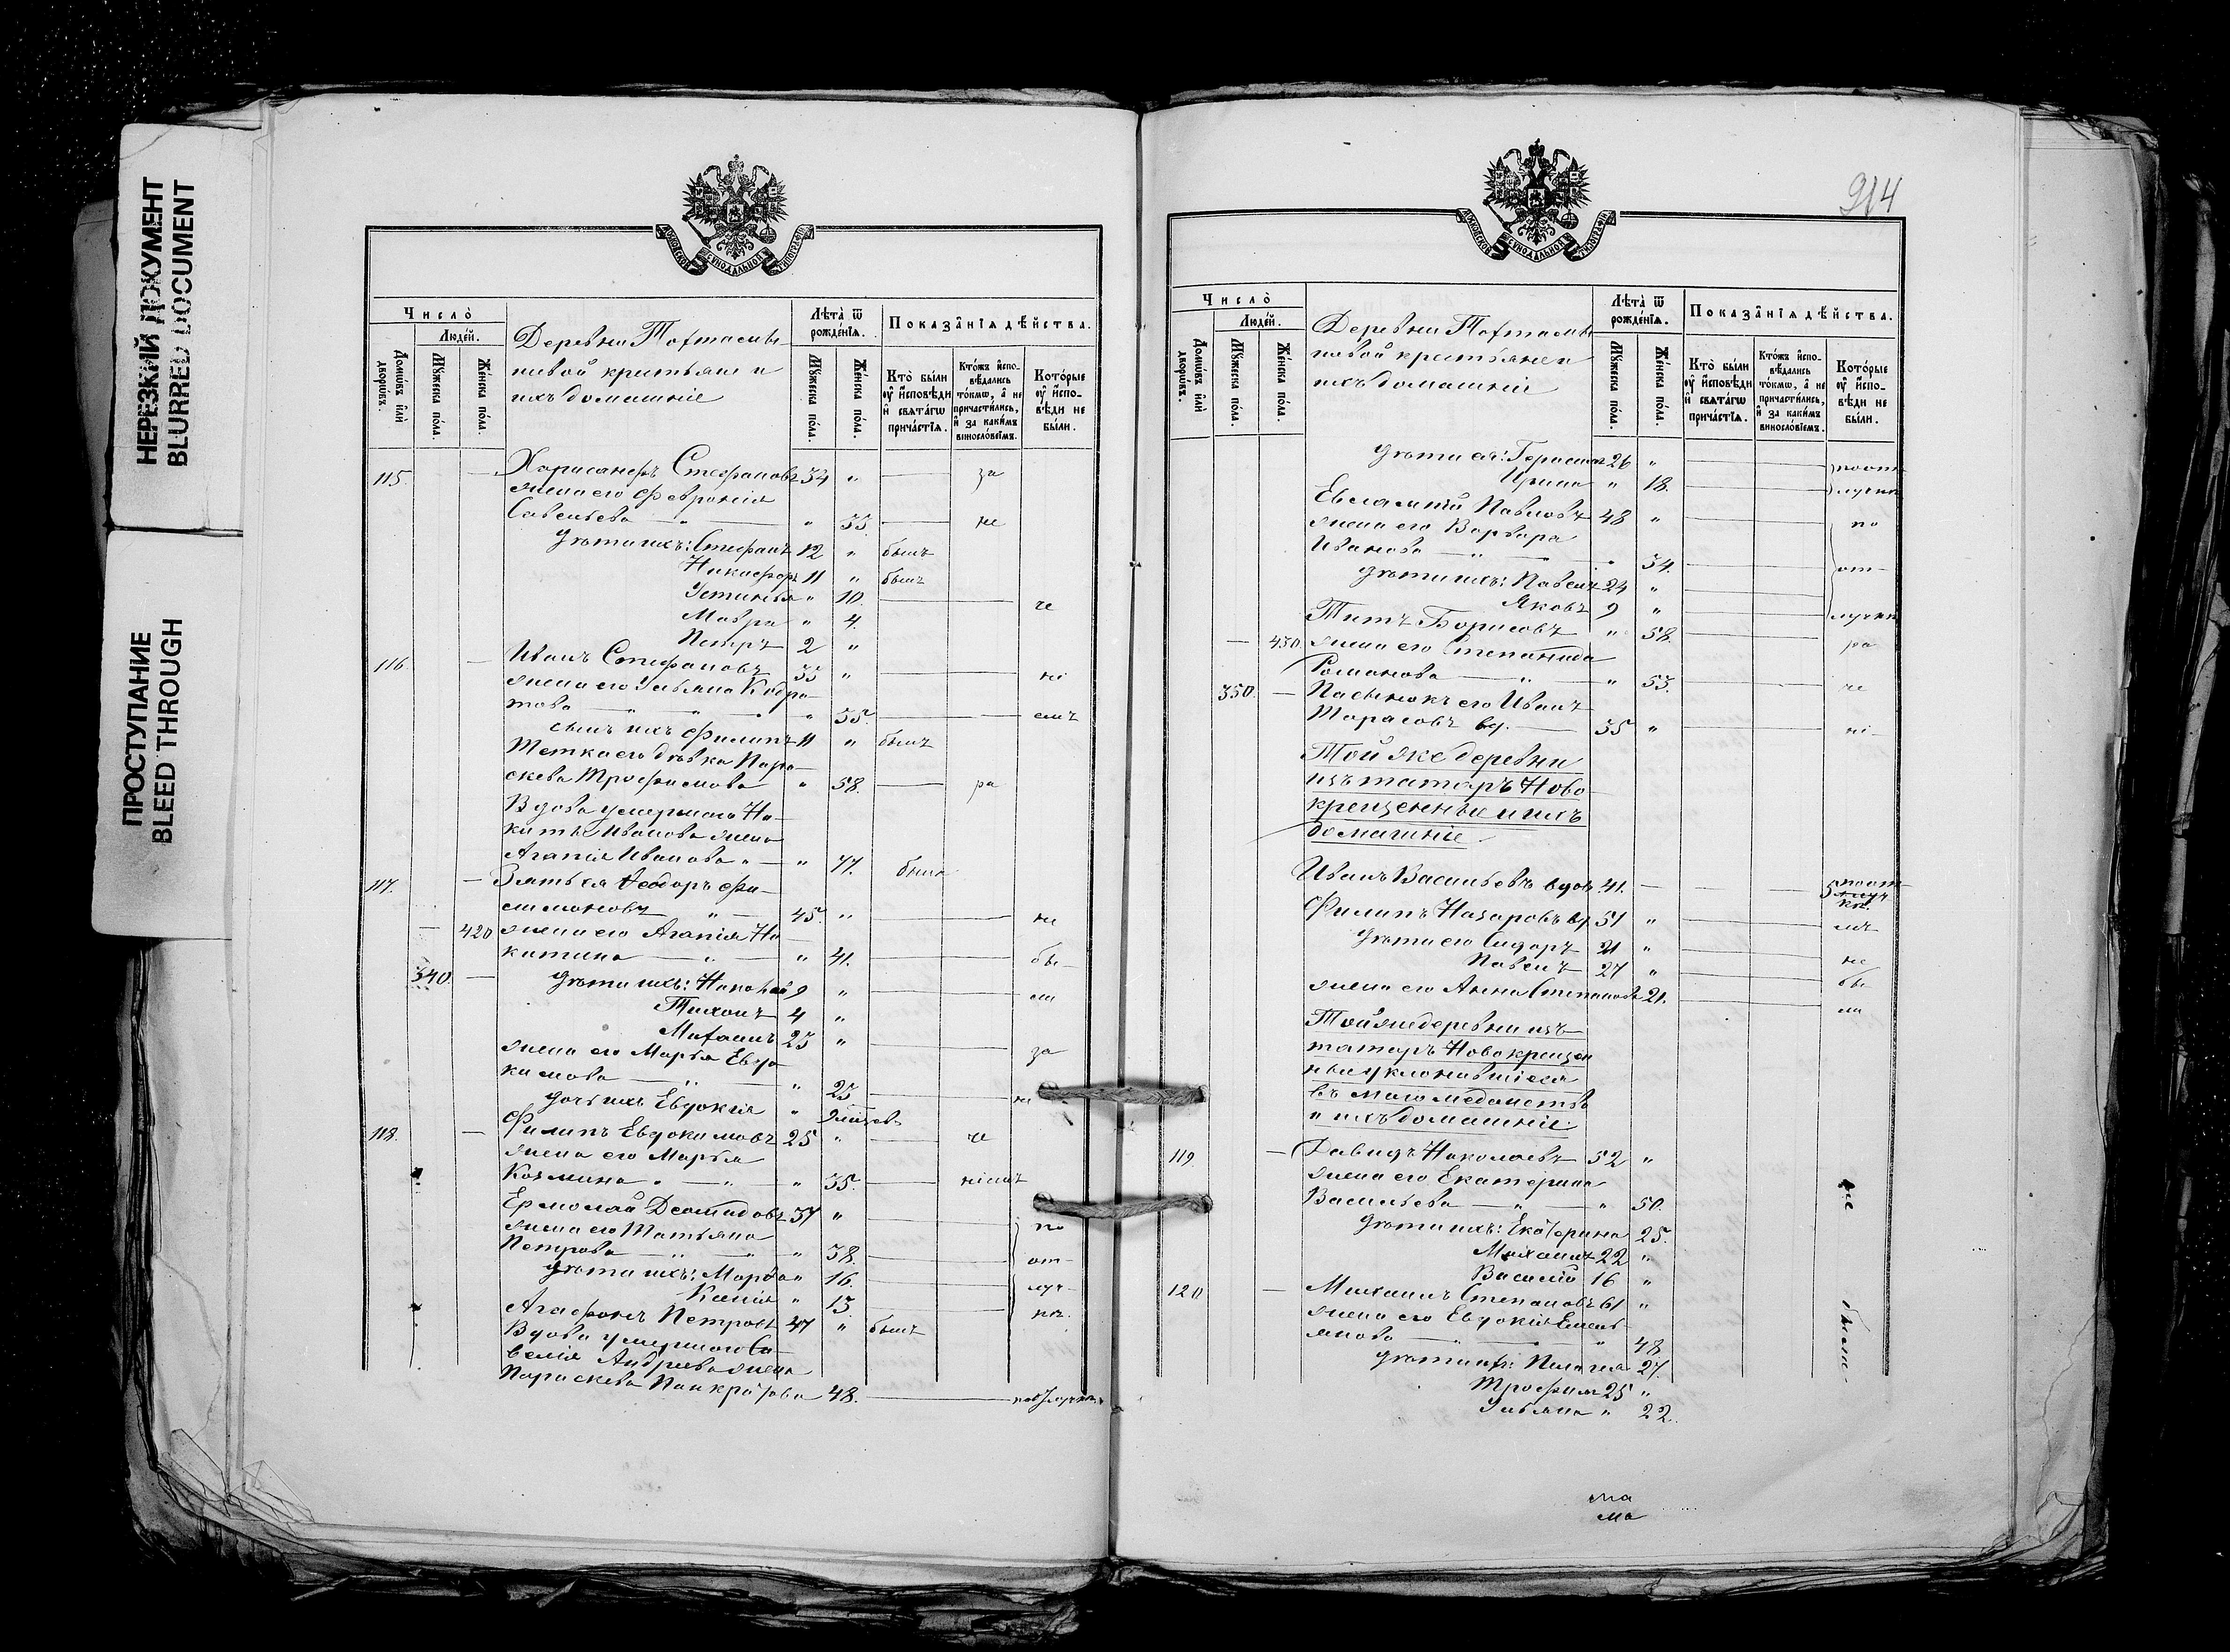 НЕРЕЗКИЙ ДОКУМЕНТ
BLURRED DOCUMENT
ПРОСТУПАНИЕ
BLEED THROUGH
МОСКОВСКОЙ СѴНОДАЛЬНОЙ ТИПОГРАФІИ
Число̀
Людей.
Домѡвъ илѝ дворѡвъ.
Мꙋжеска пола.
Женска пола.
Деревни Тохтамы
шевой крестьяне и
ихъ домашніе
Лѣта̀ ѿ рожденїѧ.
Мꙋжеска пола.
Женска пола.
Показанїѧ дѣйства.
Кто̀ были ᲂу҆ исповѣди и҆ свѧтагѡ причастїѧ.
Ктожъ исповѣдались токмѡ, а҆ не причастились, и҆ за какимъ винословїемъ.
Которые ᲂу҆ исповѣди не были.
115. — Хрисанфъ Стефановъ 34 " — за
жена его Феврония
Савельева — " — " 33. — не
дѣти ихъ: Стефанъ 12 " былъ
Никифоръ 11 " былъ
Устинья " 10. — че
Мавра " 4.
Петръ 2 "
116. — Иванъ Стефановъ 33 " — ні
жена его Ульяна Кодра
това — " 35. — емъ
сынъ ихъ Филипъ 11 " былъ
Тетка его дѣвка Пара
скева Трофимова " 58. — ра
Вдова умершаго Ни
киты Иванова жена
Агапія Иванова " — " 77. была
117. — Зять ея Ѳеодоръ Фи
лимоновъ " — 45. " — не
— 420 жена его Агапія Ни
китина — " — " 41. — бы
340. — дѣти ихъ: Николай 9 " — ли
Тихонъ 4 "
Михаилъ 25 " — за
жена его Марья Евдо
кимова — " — " 25 — не
дочь ихъ Евдокія " 9 мѣсяцевъ
118. — Филипъ Евдокимовъ 25 " — че
жена его Марья
Козмина " — " — " 35. — ніемъ
Ермолай Деомидовъ 37 " — по
жена его Татьяна
Петрова — " — " 38. — от
дѣти ихъ: Марья " 16. — луч
Ксенія " 13. — кѣ.
Агафонъ Петровъ 47 " былъ
Вдова умершаго Са
велія Андреева жена
Параскева Панкратова 48. — по отлучкѣ
914
МОСКОВСКОЙ СѴНОДАЛЬНОЙ ТИПОГРАФІИ
Число̀
Людей.
Домѡвъ илѝ дворѡвъ.
Мꙋжеска пола.
Женска пола.
Деревни Тохтамы
шевой крестьяне и
ихъ домашніе
Лѣта̀ ѿ рожденїѧ.
Мꙋжеска пола.
Женска пола.
Показанїѧ дѣйства.
Кто̀ были ᲂу҆ исповѣди и҆ свѧтагѡ причастїѧ.
Ктожъ исповѣдались токмѡ, а҆ не причастились, и҆ за какимъ винословїемъ.
Которые ᲂу҆ исповѣди не были.
дѣти ея: Герасимъ 26 " — по от
Ирина " 18. — лучкѣ
Евлампій Павловъ 48 " — по
жена его Варвара
Иванова — " — " 34. — от
дѣти ихъ: Павелъ 24 "
Яковъ 9 " — лучкѣ
Титъ Борисовъ " 58. — ра
— 430. жена его Степанида
Романова — " — " 53. — че
350. — Пасынокъ его Иванъ
Тарасовъ вд. — 35 " — ні
Той же деревни
изъ татаръ Ново
крещенные и ихъ
домашніе.
Иванъ Васильевъ вдов. 41. — — — по от
луч
кѣ.
Филипъ Назаровъ вд. 51 " — мъ
дѣти его Сидоръ 21 " — не
Павелъ 27 " — бы
жена его Анна Степанова 21. — ли
Той же деревни изъ
татаръ Новокрещен
ные уклонившіеся
въ магомеданство
и ихъ домашніе.
119. — Давидъ Николаевъ 52 "
жена его Екатерина
Васильева — " — " 50. не
дѣти ихъ: Екатерина 25.
Михаилъ 22 "
Василій 16 "
120. — Михаилъ Степановъ 61 "
жена его Евдокія Емель
янова — " — " 48 были
дѣти их: Пелагея 27.
Трофимъ 25 "
Ульяна " 22.
ма
ма